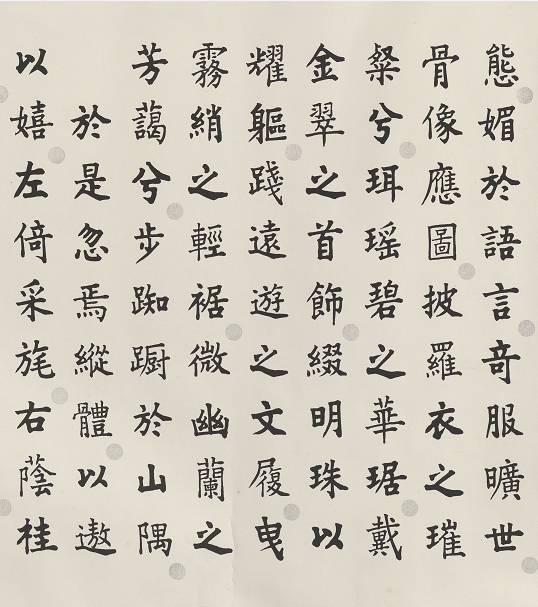 態媚於語言竒服曠世
骨像應圖披羅衣之璀
粲兮珥瑶碧之華琚戴
金翠之首飾綴明珠以
耀軀踐遠遊之文履曳
霧綃之輕裾微幽蘭之
芳藹兮步踟蹰於山隅
於是忽焉縱體以遨
以嬉左倚采旄右蔭桂